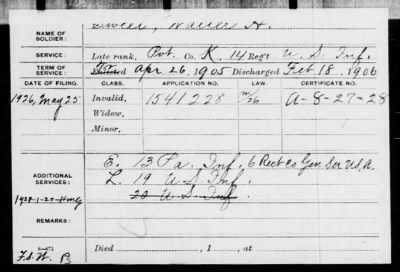 NAME OF SOLDIER: Walter H.
SERVICE: Late rank, Pvt. Co. K, 14 Reg't U. S. Inf.
TERM OF SERVICE: Enlisted Apr 26, 1905 Discharged Feb 18, 1906
DATE OF FILING. CLASS. APPLICATION NO. LAW. CERTIFICATE NO.
1926, May 25 Invalid, 1541228 A-8-27-28
Widow,
Minor,
ADDITIONAL SERVICES: E. 13 Pa. Inf, 6 Rect Co Gen Ser U.S.A.
L. 19 U S Inf.
20 U S Inf.
REMARKS:
Died , 1 , at